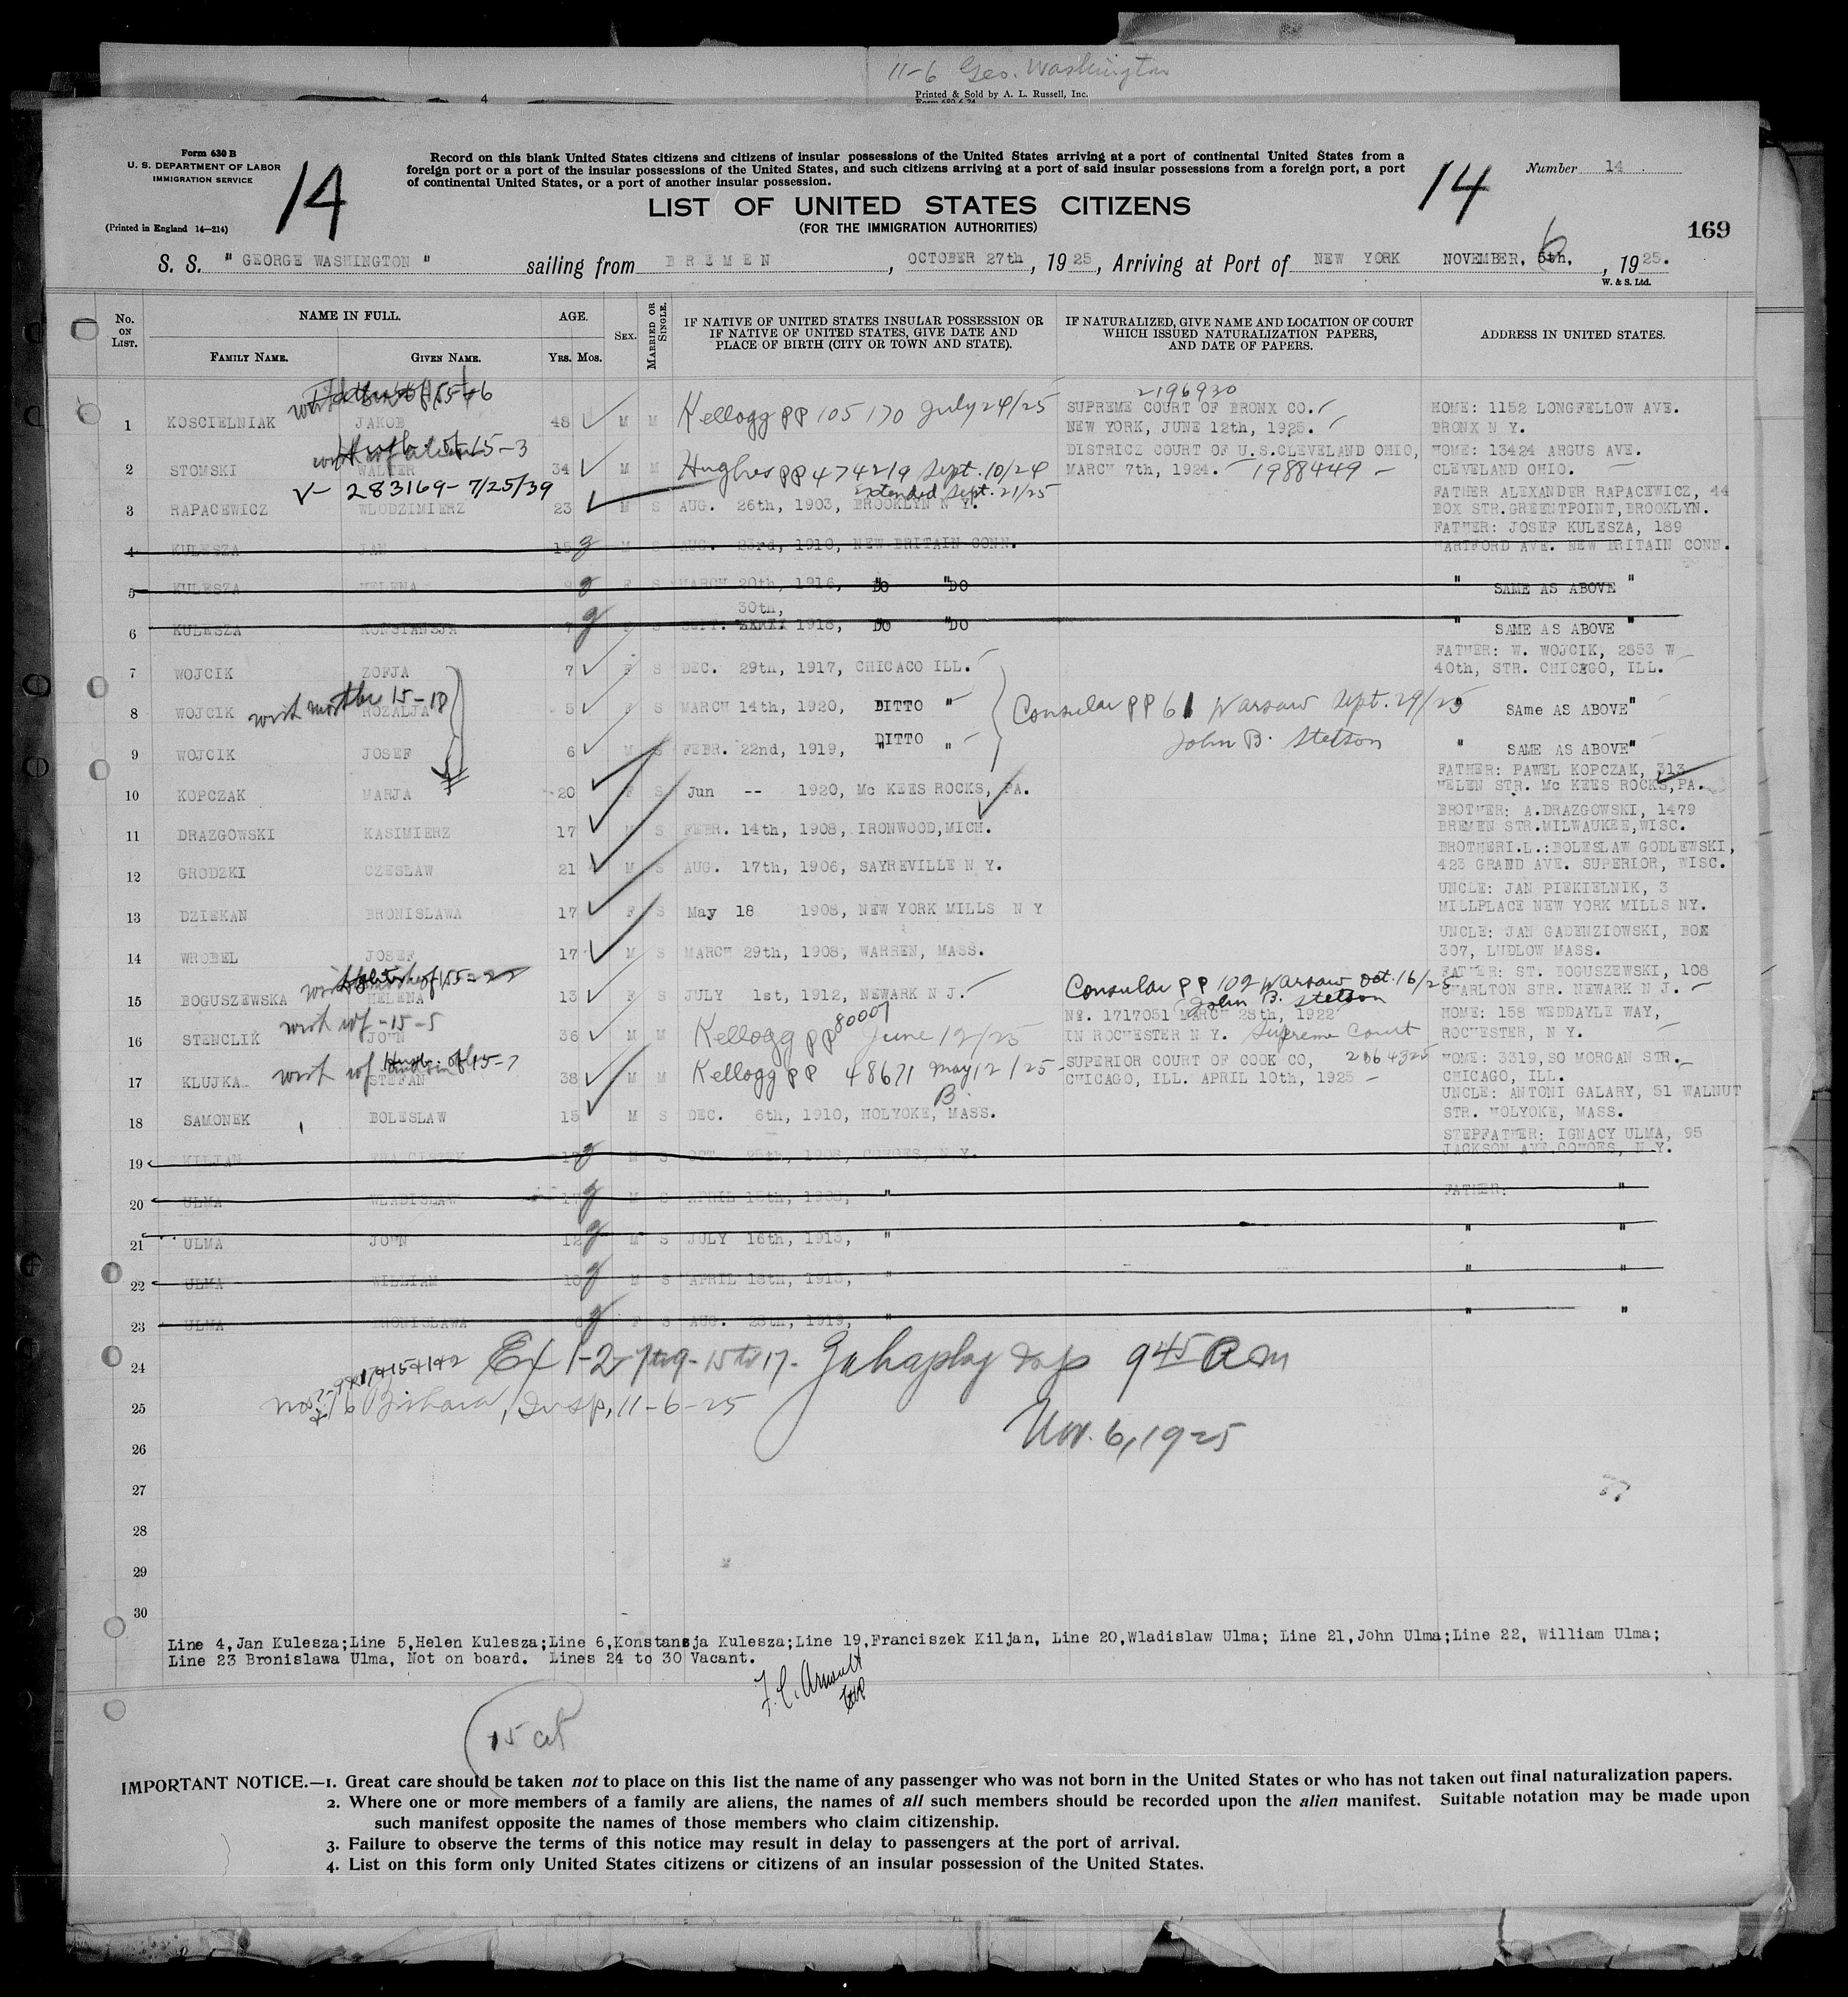 11-6 Geo. Washington
Printed & Sold by A. L. Russell, Inc.
4
Form 630 B
U. S. DEPARTMENT OF LABOR
IMMIGRATION SERVICE
(Printed in England 14—214)
14
Record on this blank United States citizens and citizens of insular possessions of the United States arriving at a port of continental United States from a
foreign port or a port of the insular possessions of the United States, and such citizens arriving at a port of said insular possessions from a foreign port, a port
of continental United States, or a port of another insular possession.
14
Number 14
LIST OF UNITED STATES CITIZENS
(FOR THE IMMIGRATION AUTHORITIES)
169
S. S. " GEORGE WASHINGTON " sailing from BREMEN, OCTOBER 27th, 1925, Arriving at Port of NEW YORK NOVEMBER, 5th, 6, 1925.
W. & S. Ltd.
No. ON LIST.
NAME IN FULL.
FAMILY NAME. GIVEN NAME.
AGE.
YRS. MOS.
SEX.
MARRIED OR SINGLE.
IF NATIVE OF UNITED STATES INSULAR POSSESSION OR
IF NATIVE OF UNITED STATES, GIVE DATE AND
PLACE OF BIRTH (CITY OR TOWN AND STATE).
IF NATURALIZED, GIVE NAME AND LOCATION OF COURT
WHICH ISSUED NATURALIZATION PAPERS,
AND DATE OF PAPERS.
ADDRESS IN UNITED STATES.
15-6
2196930
1 KOSCIELNIAK JAKOB 48 M M Kellogg PP 105170 July 24/25 SUPREME COURT OF BRONX CO. HOME: 1152 LONGFELLOW AVE.
NEW YORK, JUNE 12th, 1925. BRONX N Y.
15-3
DISTRICE COURT OF U.S.CLEVELAND OHIO, HOME: 13424 ARGUS AVE.
2 STOMSKI WALTER 34 M M Hughes PP 474219 Sept. 10/24 MARCH 7th, 1924. 1988449 - CLEVELAND OHIO.
V- 283169- 7/25/39 extended Sept. 21/25
FATHER ALEXANDER RAPACEWICZ, 44
3 RAPACEWICZ WLODZIMIERZ 23 M S AUG. 26th, 1903, BROOKLYN N Y. BOX STR.GREENTPOINT,BROOKLYN.
FATHER: JOSEF KULESZA, 189
4 KULESZA JAN 15 M S AUG. 23rd, 1910, NEW BRITAIN CONN. HARTFORD AVE. NEW BRITAIN CONN.
5 KULESZA HELENA 9 F S MARCH 20th, 1916, DO "DO " SAME AS ABOVE "
30th,
6 KULESZA KONSTANSJA 7 F S SEPT. XXXXX 1918, DO "DO " SAME AS ABOVE "
FATHER: W. WOJCIK, 2853 W
7 WOJCIK ZOFJA 7 F S DEC. 29th, 1917, CHICACO ILL. 40th, STR. CHICAGO, ILL.
15-18
8 WOJCIK ROZALJA 5 F S MARCH 14th, 1920, DITTO " Consular PP 61 Warsaw Sept. 29/25 SAMe AS ABOVE"
John B. Stetson
9 WOJCIK JOSEF 6 M S FEBR. 22nd, 1919, DITTO " " SAME AS ABOVE"
FATHER: PAWEL KOPCZAK, 313
10 KOPCZAK MARJA 20 F S Jun -- 1920, Mc KEES ROCKS, PA. HELEN STR. Mc KEES ROCKS,PA.
BROTHER: A.DRAZGOWSKI, 1479
11 DRAZGOWSKI KASIMIERZ 17 M S FEBR. 14th, 1908, IRONWOOD,MICH. BREMEN STR.MILWAUKEE,WISC.
BROTHERI.L.:BOLESLAW GODLEWSKI,
12 GRODZKI CZESLAW 21 M S AUG. 17th, 1906, SAYREVILLE N Y. 423 GRAND AVE. SUPERIOR, WISC.
UNCLE: JAN PIEKIELNIK, 3
13 DZIEKAN BRONISLAWA 17 F S May 18 1908, NEW YORK MILLS N Y MILLPLACE NEW YORK MILLS NY.
UNCLE: JAN GADENZIOWSKI, BOX
14 WROBEL JOSEF 17 M S MARCH 29th, 1908, WARREN, MASS. 307, LUDLOW MASS.
FATHER: ST. BOGUSZEWSKI, 108
15 BOGUSZEWSKA HELENA 13 F S JULY 1st, 1912, NEWARK N J. Consular PP 109 Warsaw Oct. 16/25 CHARLTON STR. NEWARK N J.
John B. Stetson
wit wf -15-5
80007
No. 1717051 MARCH 28th, 1922 HOME: 158 WEDDAYLE WAY,
16 STENCLIK JOHN 36 M M Kellogg PP June 12/25 IN ROCHESTER N Y. Supreme Court ROCHESTER, N Y.
wit wf 15-7
17 KLUJKA STEFAN 38 M M Kellogg PP 48671 May 12/25 - SUPERIOR COURT OF COOK CO, 2064325 HOME: 3319,SO MORGAN STR.
CHICAGO, ILL. APRIL 10th, 1925 - CHICAGO, ILL.
B.
UNCLE: ANTONI GALARY, 51 WALNUT
18 SAMONEK BOLESLAW 15 M S DEC. 6th, 1910, HOLYOKE, MASS. STR. HOLYOKE, MASS.
STEPFATHER: IGNACY ULMA, 95
19 KILJAN FRANCISZEK 17 M S OCT. 25th, 1908, COHOES, N Y. JACKSON AVE.COHOES, N.Y.
20 ULMA WLADISLAW 17 M S APRIL 1908, " FATHER: "
21 ULMA JOHN 12 M S JULY 16th, 1913, " " "
22 ULMA WILLIAM 10 M S APRIL 18th, 1915, " " "
23 ULMA BRONISLAWA 6 F S AUG. 28th, 1919, " " "
24 Ex 1-2- 7 to 9- 15 to 17- 9 45 AM
25 11-6-25
Nov. 6, 1925
26
27
28
29
30
Line 4,Jan Kulesza;Line 5,Helen Kulesza;Line 6,Konstansja Kulesza;Line 19,Franciszek Kiljan, Line 20,Wladislaw Ulma; Line 21,John Ulma;Line 22, William Ulma;
Line 23 Bronislawa Ulma, Not on board. Lines 24 to 30 Vacant.
F. C. Arnoult
15 cit
IMPORTANT NOTICE.—1. Great care should be taken not to place on this list the name of any passenger who was not born in the United States or who has not taken out final naturalization papers.
2. Where one or more members of a family are aliens, the names of all such members should be recorded upon the alien manifest. Suitable notation may be made upon
such manifest opposite the names of those members who claim citizenship.
3. Failure to observe the terms of this notice may result in delay to passengers at the port of arrival.
4. List on this form only United States citizens or citizens of an insular possession of the United States.